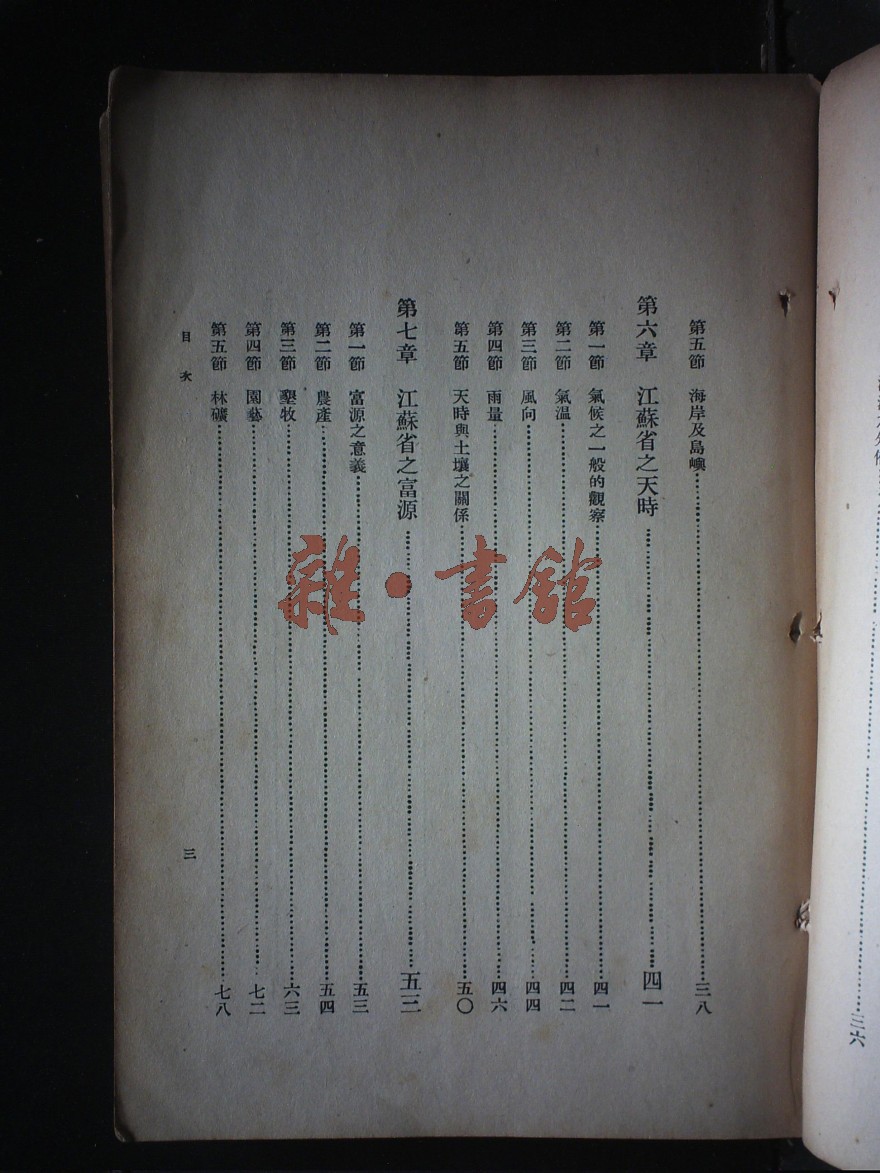 第五節　海岸及島嶼……三八
第六章　江蘇省之天時……四一
第一節　氣候之一般的觀察……四一
第二節　氣温……四二
第三節　風向……四四
第四節　雨量……四六
第五節　天時與土壤之關係……五〇
第七章　江蘇省之富源……五三
第一節　富源之意義……五三
第二節　農產……五四
第三節　墾牧……六三
第四節　園藝……七二
第五節　林礦……七八
目次
三
雜·書館
三六